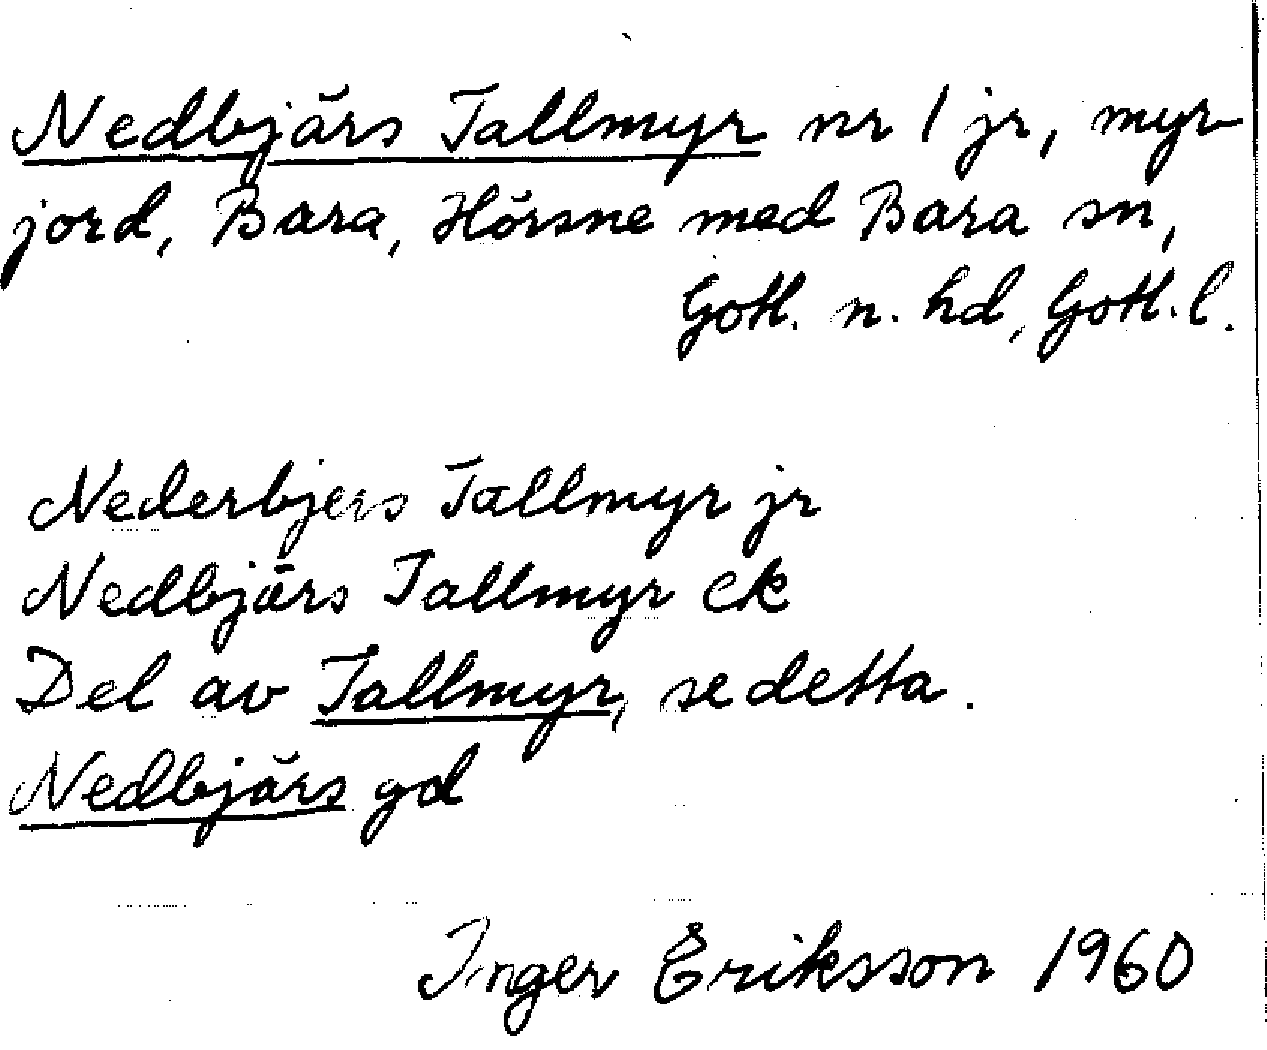 Nedbjärs Tallmyr nr 1 jr, myr-
jord, Bara, Hörsne med Bara sn,
Gotl. n. hd, Gotl. l.
Nederbjers Tallmyr jr
Nedbjärs Tallmyr ek
Del av Tallmyr, se detta.
Nedbjärs gd
Inger Eriksson 1960